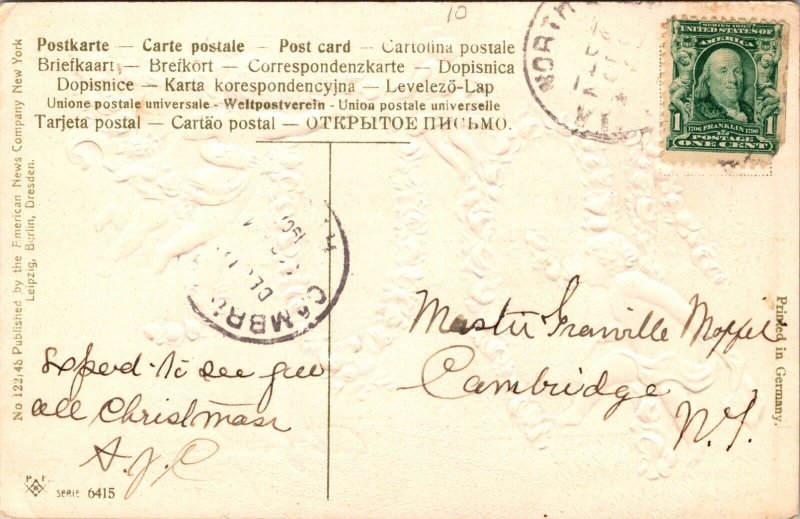 10
Postkarte — Carte postale — Post card — Cartolina postale
Briefkaart — Brefkort — Correspondenzkarte — Dopisnica
Dopisnice — Karta korespondencyjna — Levelező-Lap
Unione postale universale - Weltpostverein - Union postale universelle
Tarjeta postal — Cartão postal — ОТКРЫТОЕ ПИСЬМО.
No 122/48 Published by the American News Company New York
Leipzig, Berlin, Dresden.
NORTH
SERIES 1902
UNITED STATES OF
AMERICA
1 1
1706 FRANKLIN 1790
POSTAGE
ONE CENT
CAMBRI
DEC
Master Granville Moffet
Cambridge
N.Y.
Expect to see you
all Christmas
A.J.C
SERIE 6415
Printed in Germany.